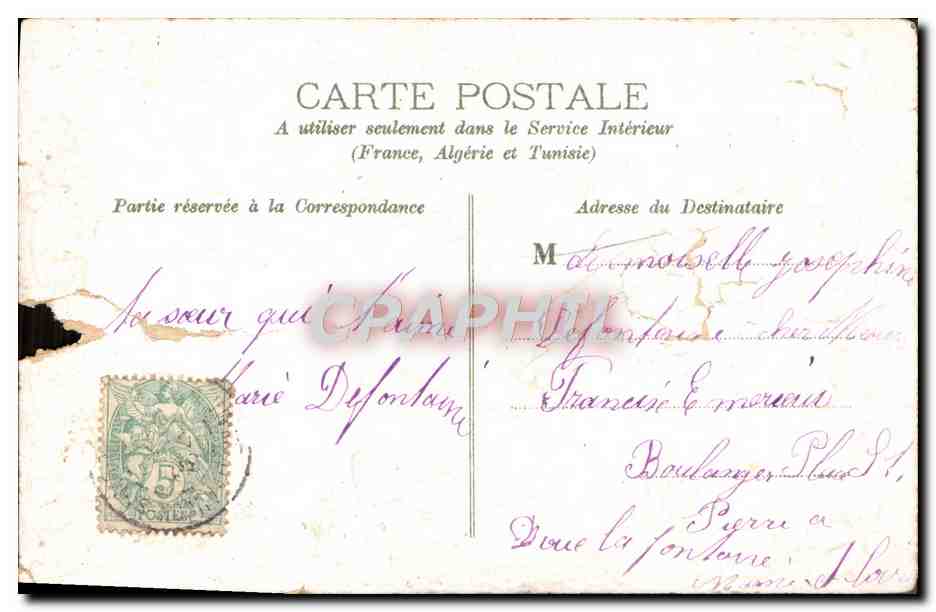 CARTE POSTALE
A utiliser seulement dans le Service Intérieur
(France, Algérie et Tunisie)
Partie réservée à la Correspondance
ta sœur qui t'aime
Marie Defontaine
5
POSTES
Adresse du Destinataire
Mademoiselle Josephine
Defontaine chez
Francisé Emeriau
Boulanger Place St
Pierre a
Doue la fontaine
Maine et Loire
CPAPHIL